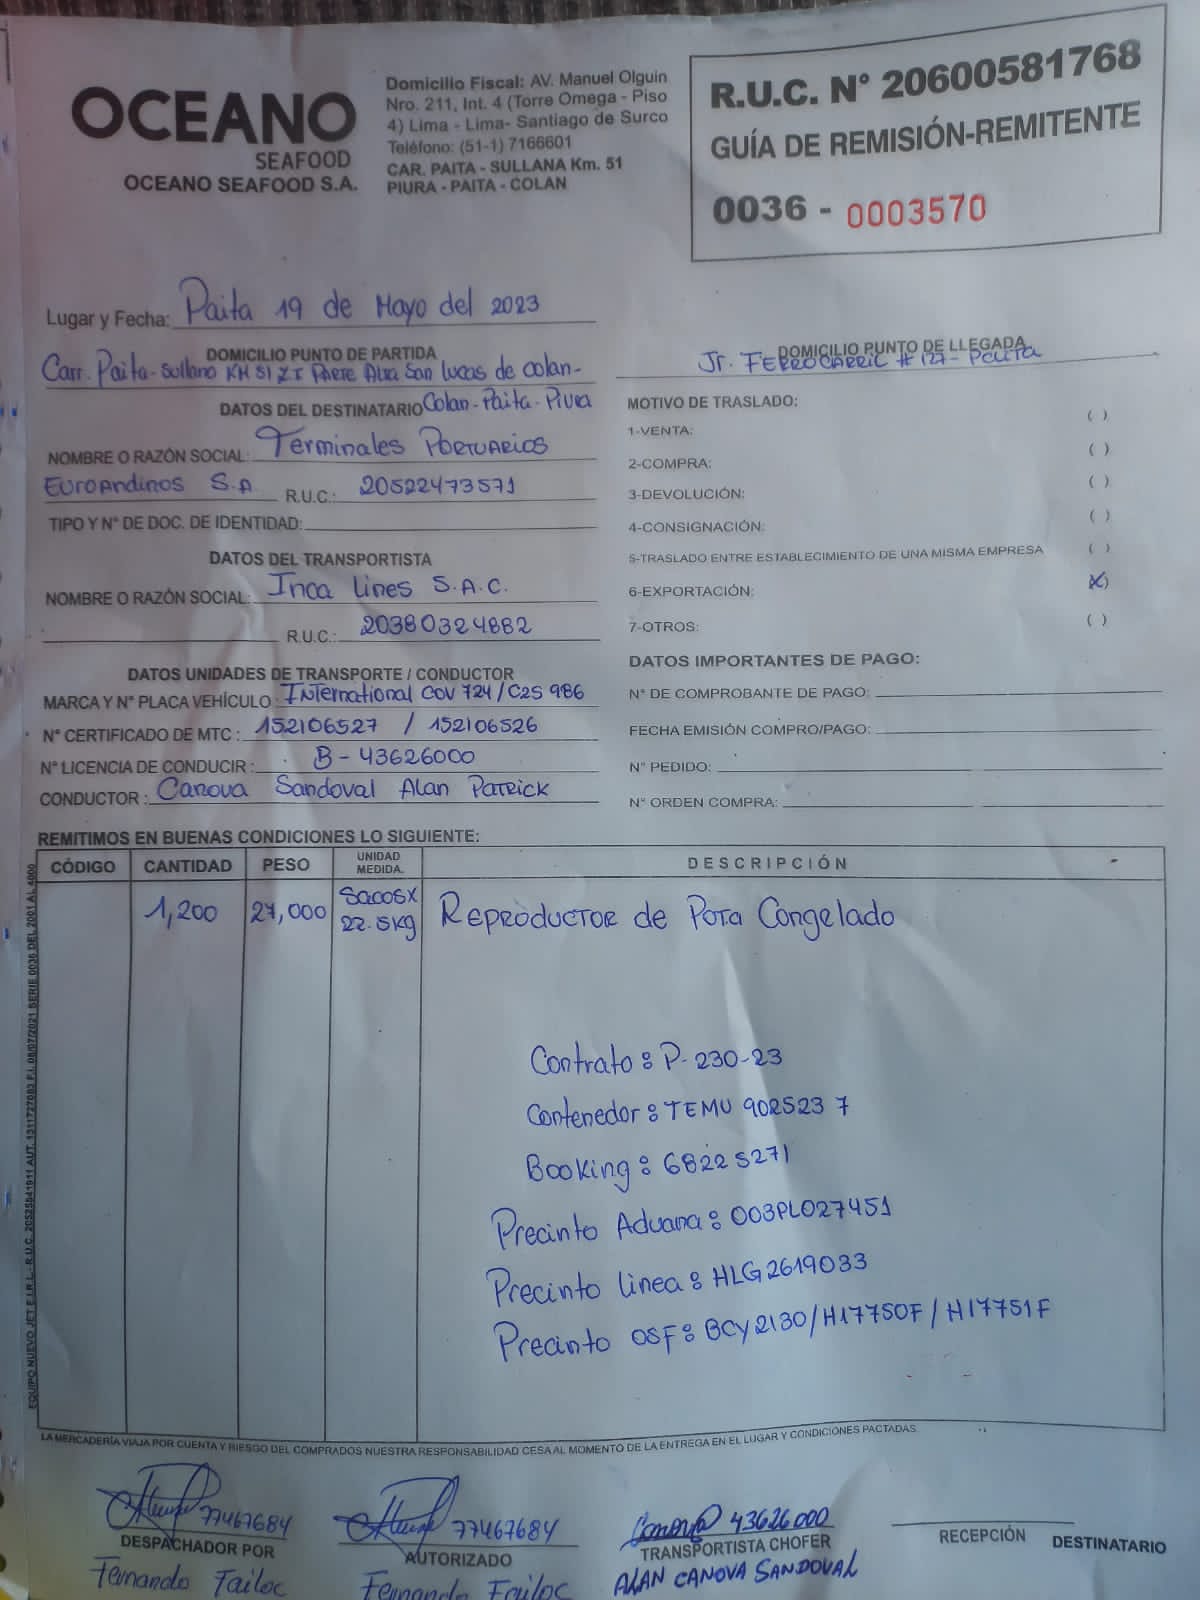 OCEANO
SEAFOOD
OCEANO SEAFOOD S.A.
Domicilio Fiscal: AV. Manuel Olguin
Nro. 211, Int. 4 (Torre Omega - Piso
4) Lima - Lima- Santiago de Surco
Teléfono: (51-1) 7166601
CAR. PAITA - SULLANA Km. 51
PIURA - PAITA - COLAN
R.U.C. N° 20600581768
GUÍA DE REMISIÓN-REMITENTE
0036 - 0003570
Lugar y Fecha: Paita 19 de Mayo del 2023
DOMICILIO PUNTO DE PARTIDA
Carr. Paita-Sullana KM 51 Z I Parte Alta San Lucas de Colan-
Colan-Paita-Piura
DOMICILIO PUNTO DE LLEGADA
Jr. FERROCARRIL # 127- Paita
DATOS DEL DESTINATARIO
NOMBRE O RAZÓN SOCIAL: Terminales Portuarios
Euroandinos S.A R.U.C.: 20522473571
TIPO Y N° DE DOC. DE IDENTIDAD:
DATOS DEL TRANSPORTISTA
NOMBRE O RAZÓN SOCIAL: Inca Lines S.A.C.
R.U.C.: 20380324882
DATOS UNIDADES DE TRANSPORTE / CONDUCTOR
MARCA Y N° PLACA VEHÍCULO: International COV 724/C2S 986
N° CERTIFICADO DE MTC: 152106527 / 152106526
N° LICENCIA DE CONDUCIR: B-43626000
CONDUCTOR: Canova Sandoval Alan Patrick
MOTIVO DE TRASLADO:
1-VENTA: ( )
2-COMPRA: ( )
3-DEVOLUCIÓN: ( )
4-CONSIGNACIÓN: ( )
5-TRASLADO ENTRE ESTABLECIMIENTO DE UNA MISMA EMPRESA ( )
6-EXPORTACIÓN: (X)
7-OTROS: ( )
DATOS IMPORTANTES DE PAGO:
N° DE COMPROBANTE DE PAGO:
FECHA EMISIÓN COMPRO/PAGO:
N° PEDIDO:
N° ORDEN COMPRA:
REMITIMOS EN BUENAS CONDICIONES LO SIGUIENTE:
CÓDIGO CANTIDAD PESO UNIDAD MEDIDA. DESCRIPCIÓN
1,200 27,000 Sacos x 22.5kg Reproductor de Pota Congelado
Contrato: P-230-23
Contenedor: TEMU 902523 7
Booking: 68225271
Precinto Aduana: 003PL027451
Precinto linea: HLG2619033
Precinto OSF: BCY2130/H17750F/H17751F
LA MERCADERÍA VIAJA POR CUENTA Y RIESGO DEL COMPRADOS NUESTRA RESPONSABILIDAD CESA AL MOMENTO DE LA ENTREGA EN EL LUGAR Y CONDICIONES PACTADAS.
77467684
DESPACHADOR POR
Fernando Failoc
77467684
AUTORIZADO
Fernando Failoc
Canova 43626000
TRANSPORTISTA CHOFER
ALAN CANOVA SANDOVAL
RECEPCIÓN DESTINATARIO